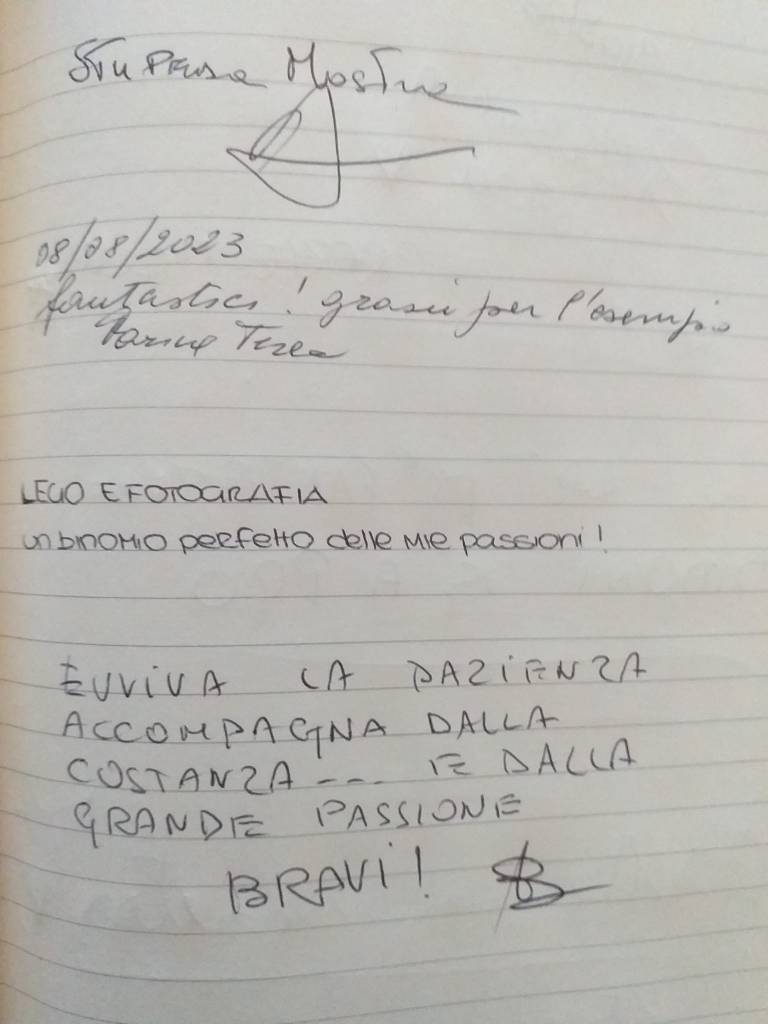 Stupenda Mostra
08/08/2023
fantastici! grazie per l'esempio
LEGO E FOTOGRAFIA
un binomio perfetto delle mie passioni!
EVVIVA LA PAZIENZA
ACCOMPAGNA DALLA
COSTANZA --- E DALLA
GRANDE PASSIONE
BRAVI!